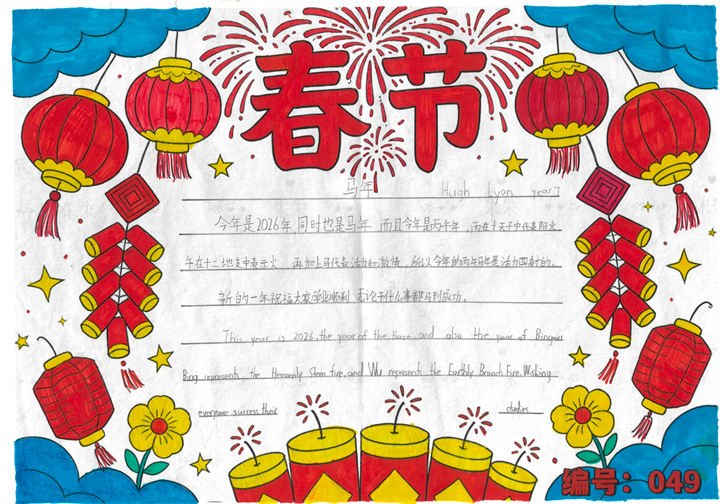 春节
马年 Hugh Lyon year7
今年是2026年,同时也是马年,而且今年是丙午年,丙在十天干中代表阳火
午在十二地支中表示火,再加上马代表活力和激情,所以今年的丙午马年是活力四射的。
新的一年祝福大家学业顺利,无论干什么事都马到成功。
This year is 2026, the year of the Horse, and also the year of Bingwu
Bing represents the Heavenly Stem fire, and Wu represents the Earthly Branch Fire. Wishing
everyone success their studies
编号:049